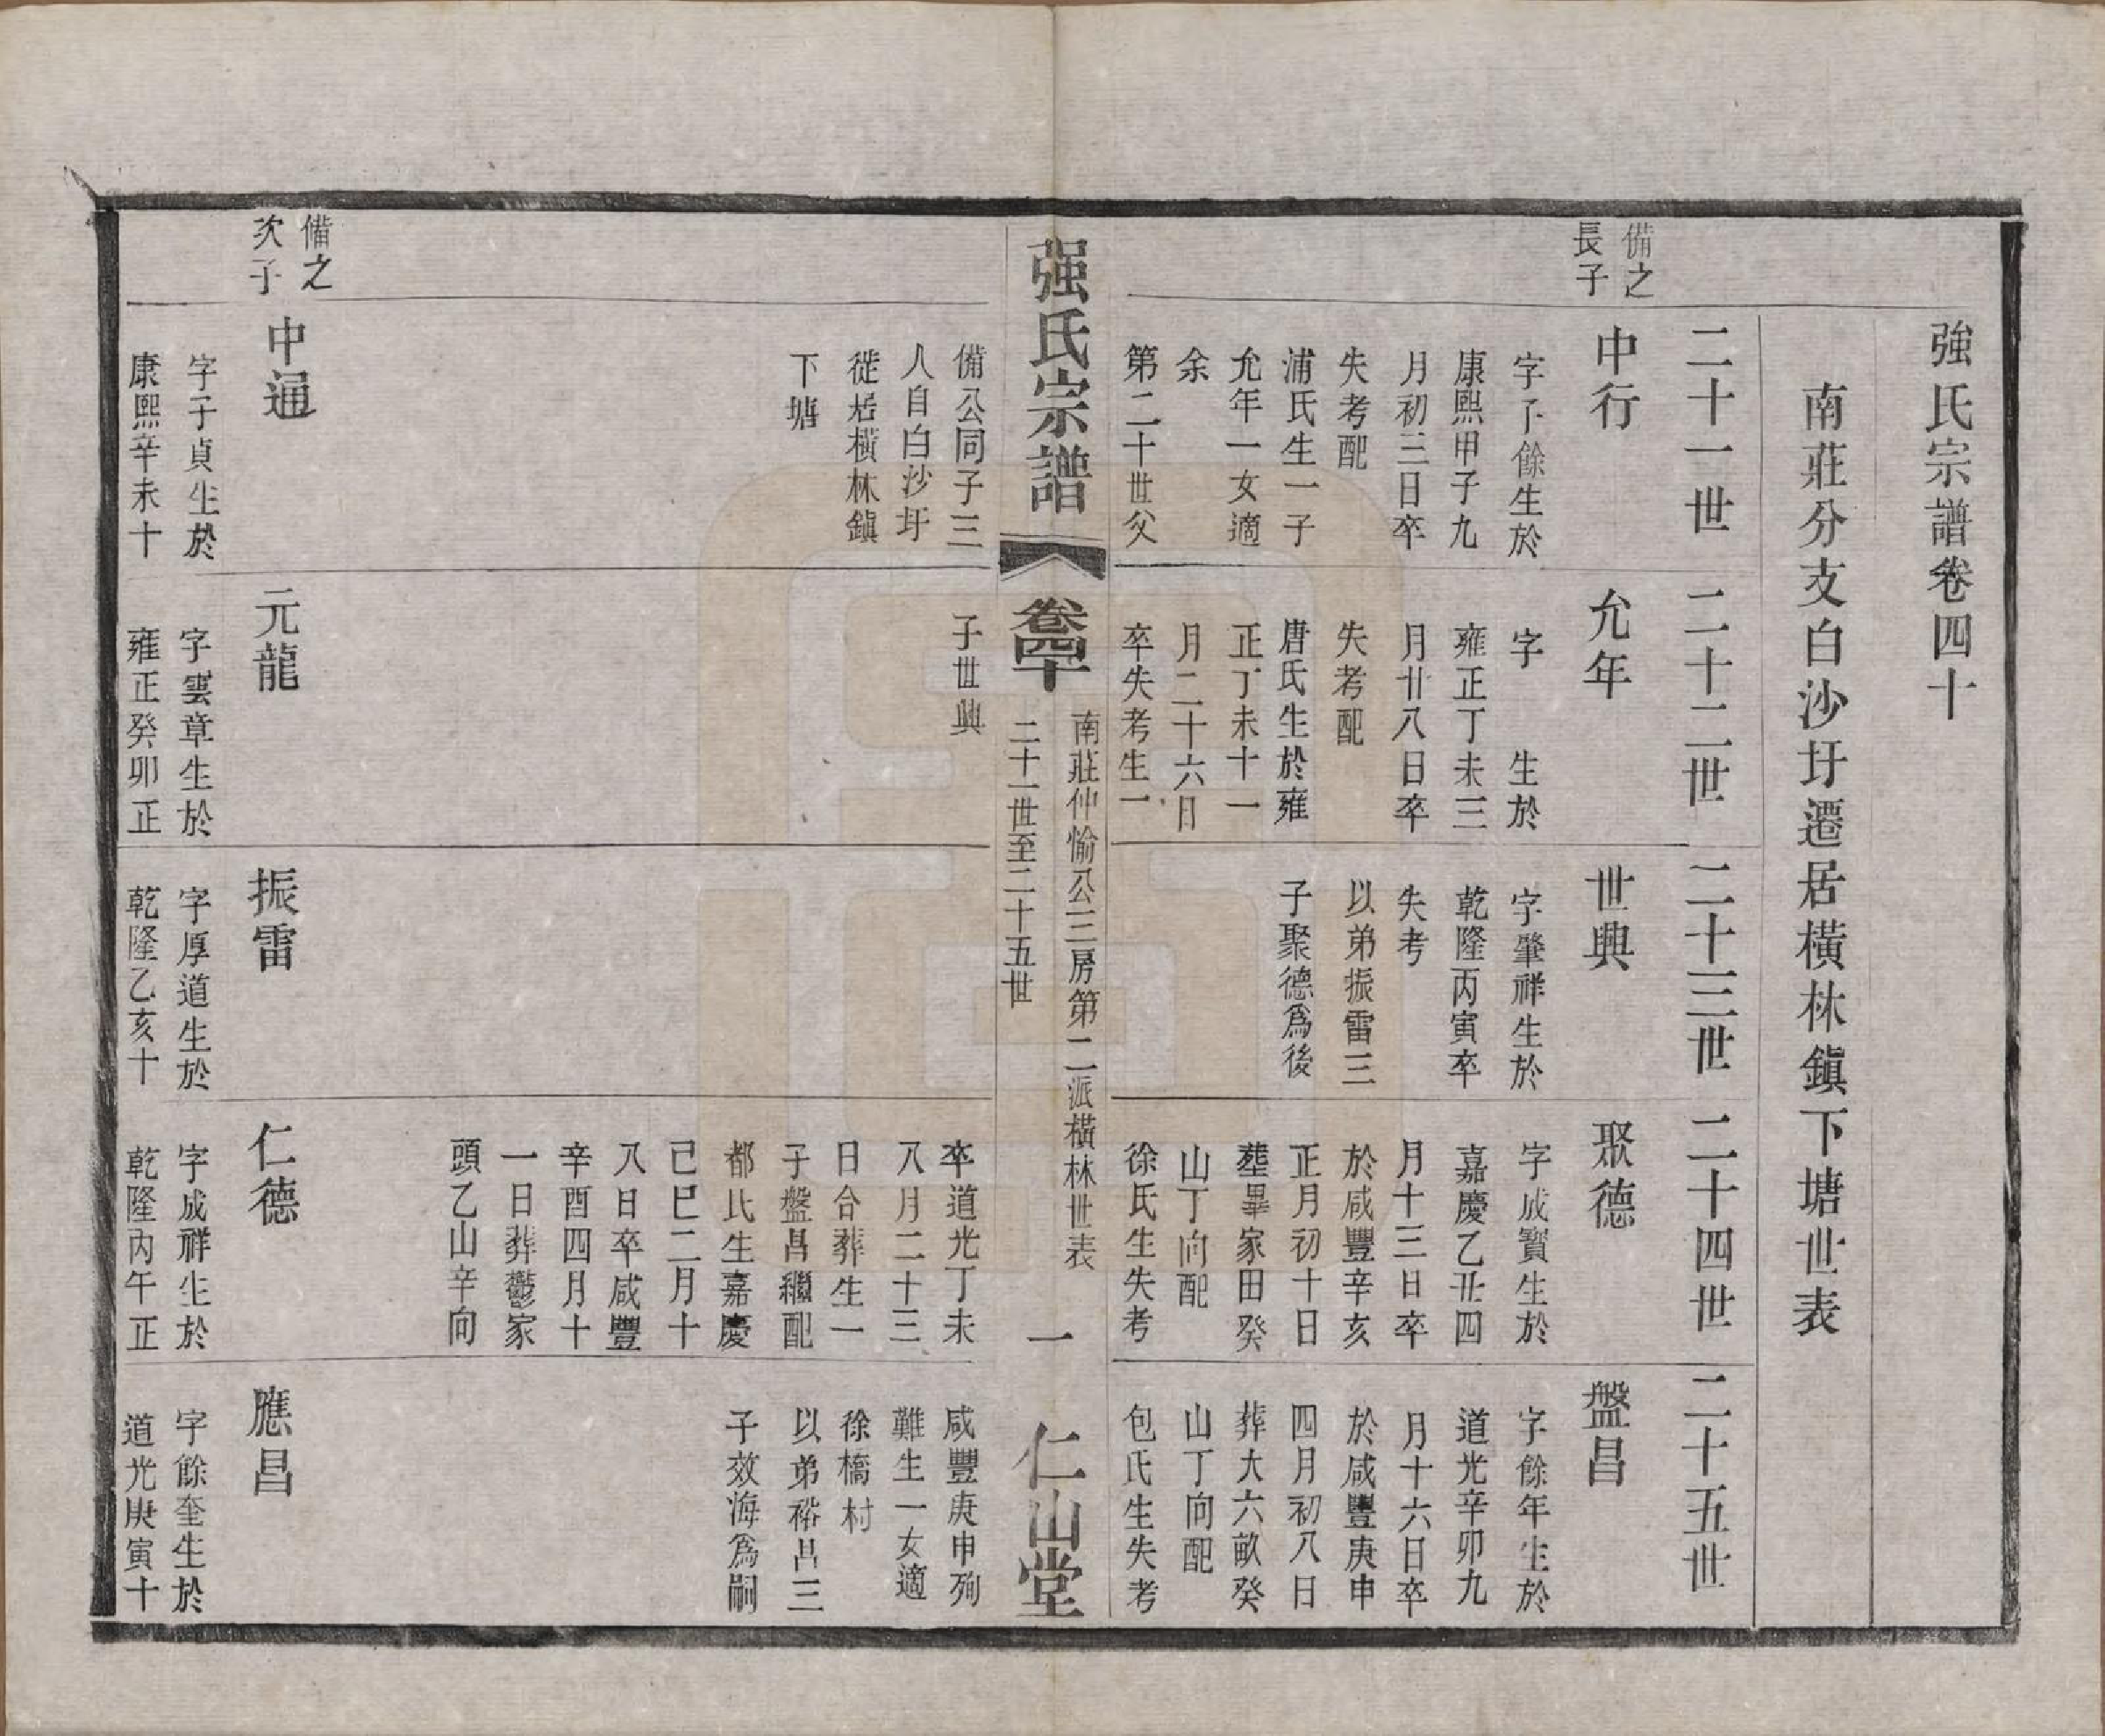 強氏宗譜卷四十
南莊分支白沙圩遷居橫林鎮下塘世表
二十一世
二十二世
二十三世
二十四世
二十五世
備之
長子
中行
字子餘生於
康熙甲子九
月初三日卒
失考配
浦氏生一子
允年一女適
余
第二十世父
備公同子三
人自白沙圩
徙居橫林鎮
下塘
允年
字　生於
雍正丁未三
月廿八日卒
失考配
唐氏生於雍
正丁未十一
月二十六日
卒失考生一
子世興
世興
字肇祥生於
乾隆丙寅卒
失考
以弟振雷三
子聚德為後
聚德
字成寶生於
嘉慶乙丑四
月十三日卒
於咸豐辛亥
正月初十日
塟畢家田癸
山丁向配
徐氏生失考
卒道光丁未
八月二十三
日合葬生一
子盤昌繼配
都氏生嘉慶
己巳二月十
八日卒咸豐
辛酉四月十
一日葬鬱家
頭乙山辛向
盤昌
字餘年生於
道光辛卯九
月十六日卒
於咸豐庚申
四月初八日
葬大六畝癸
山丁向配
包氏生失考
咸豐庚申殉
難生一女適
徐橋村
以弟裕昌三
子效海為嗣
强氏宗譜
卷四十
南莊仲愉公三房第二派橫林世表
二十一世至二十五世
一
仁山堂
備之
次子
中通
字子貞生於
康熙辛未十
元龍
字雲章生於
雍正癸卯正
振雷
字厚道生於
乾隆乙亥十
仁德
字成祥生於
乾隆丙午正
應昌
字餘奎生於
道光庚寅十